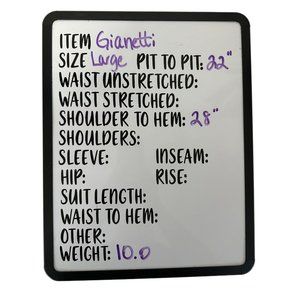 ITEM Gianetti
SIZE Large PIT TO PIT: 22"
WAIST UNSTRETCHED:
WAIST STRETCHED:
SHOULDER TO HEM: 28"
SHOULDERS:
SLEEVE: INSEAM:
HIP: RISE:
SUIT LENGTH:
WAIST TO HEM:
OTHER:
WEIGHT: 10.0